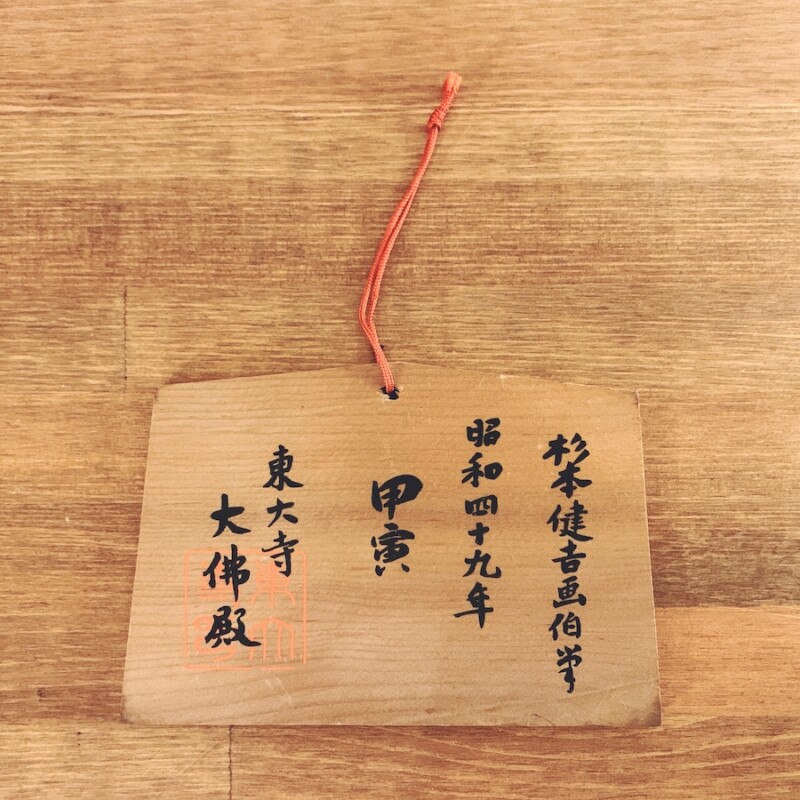 杉本健吉画伯筆
昭和四十九年
甲寅
東大寺
大佛殿